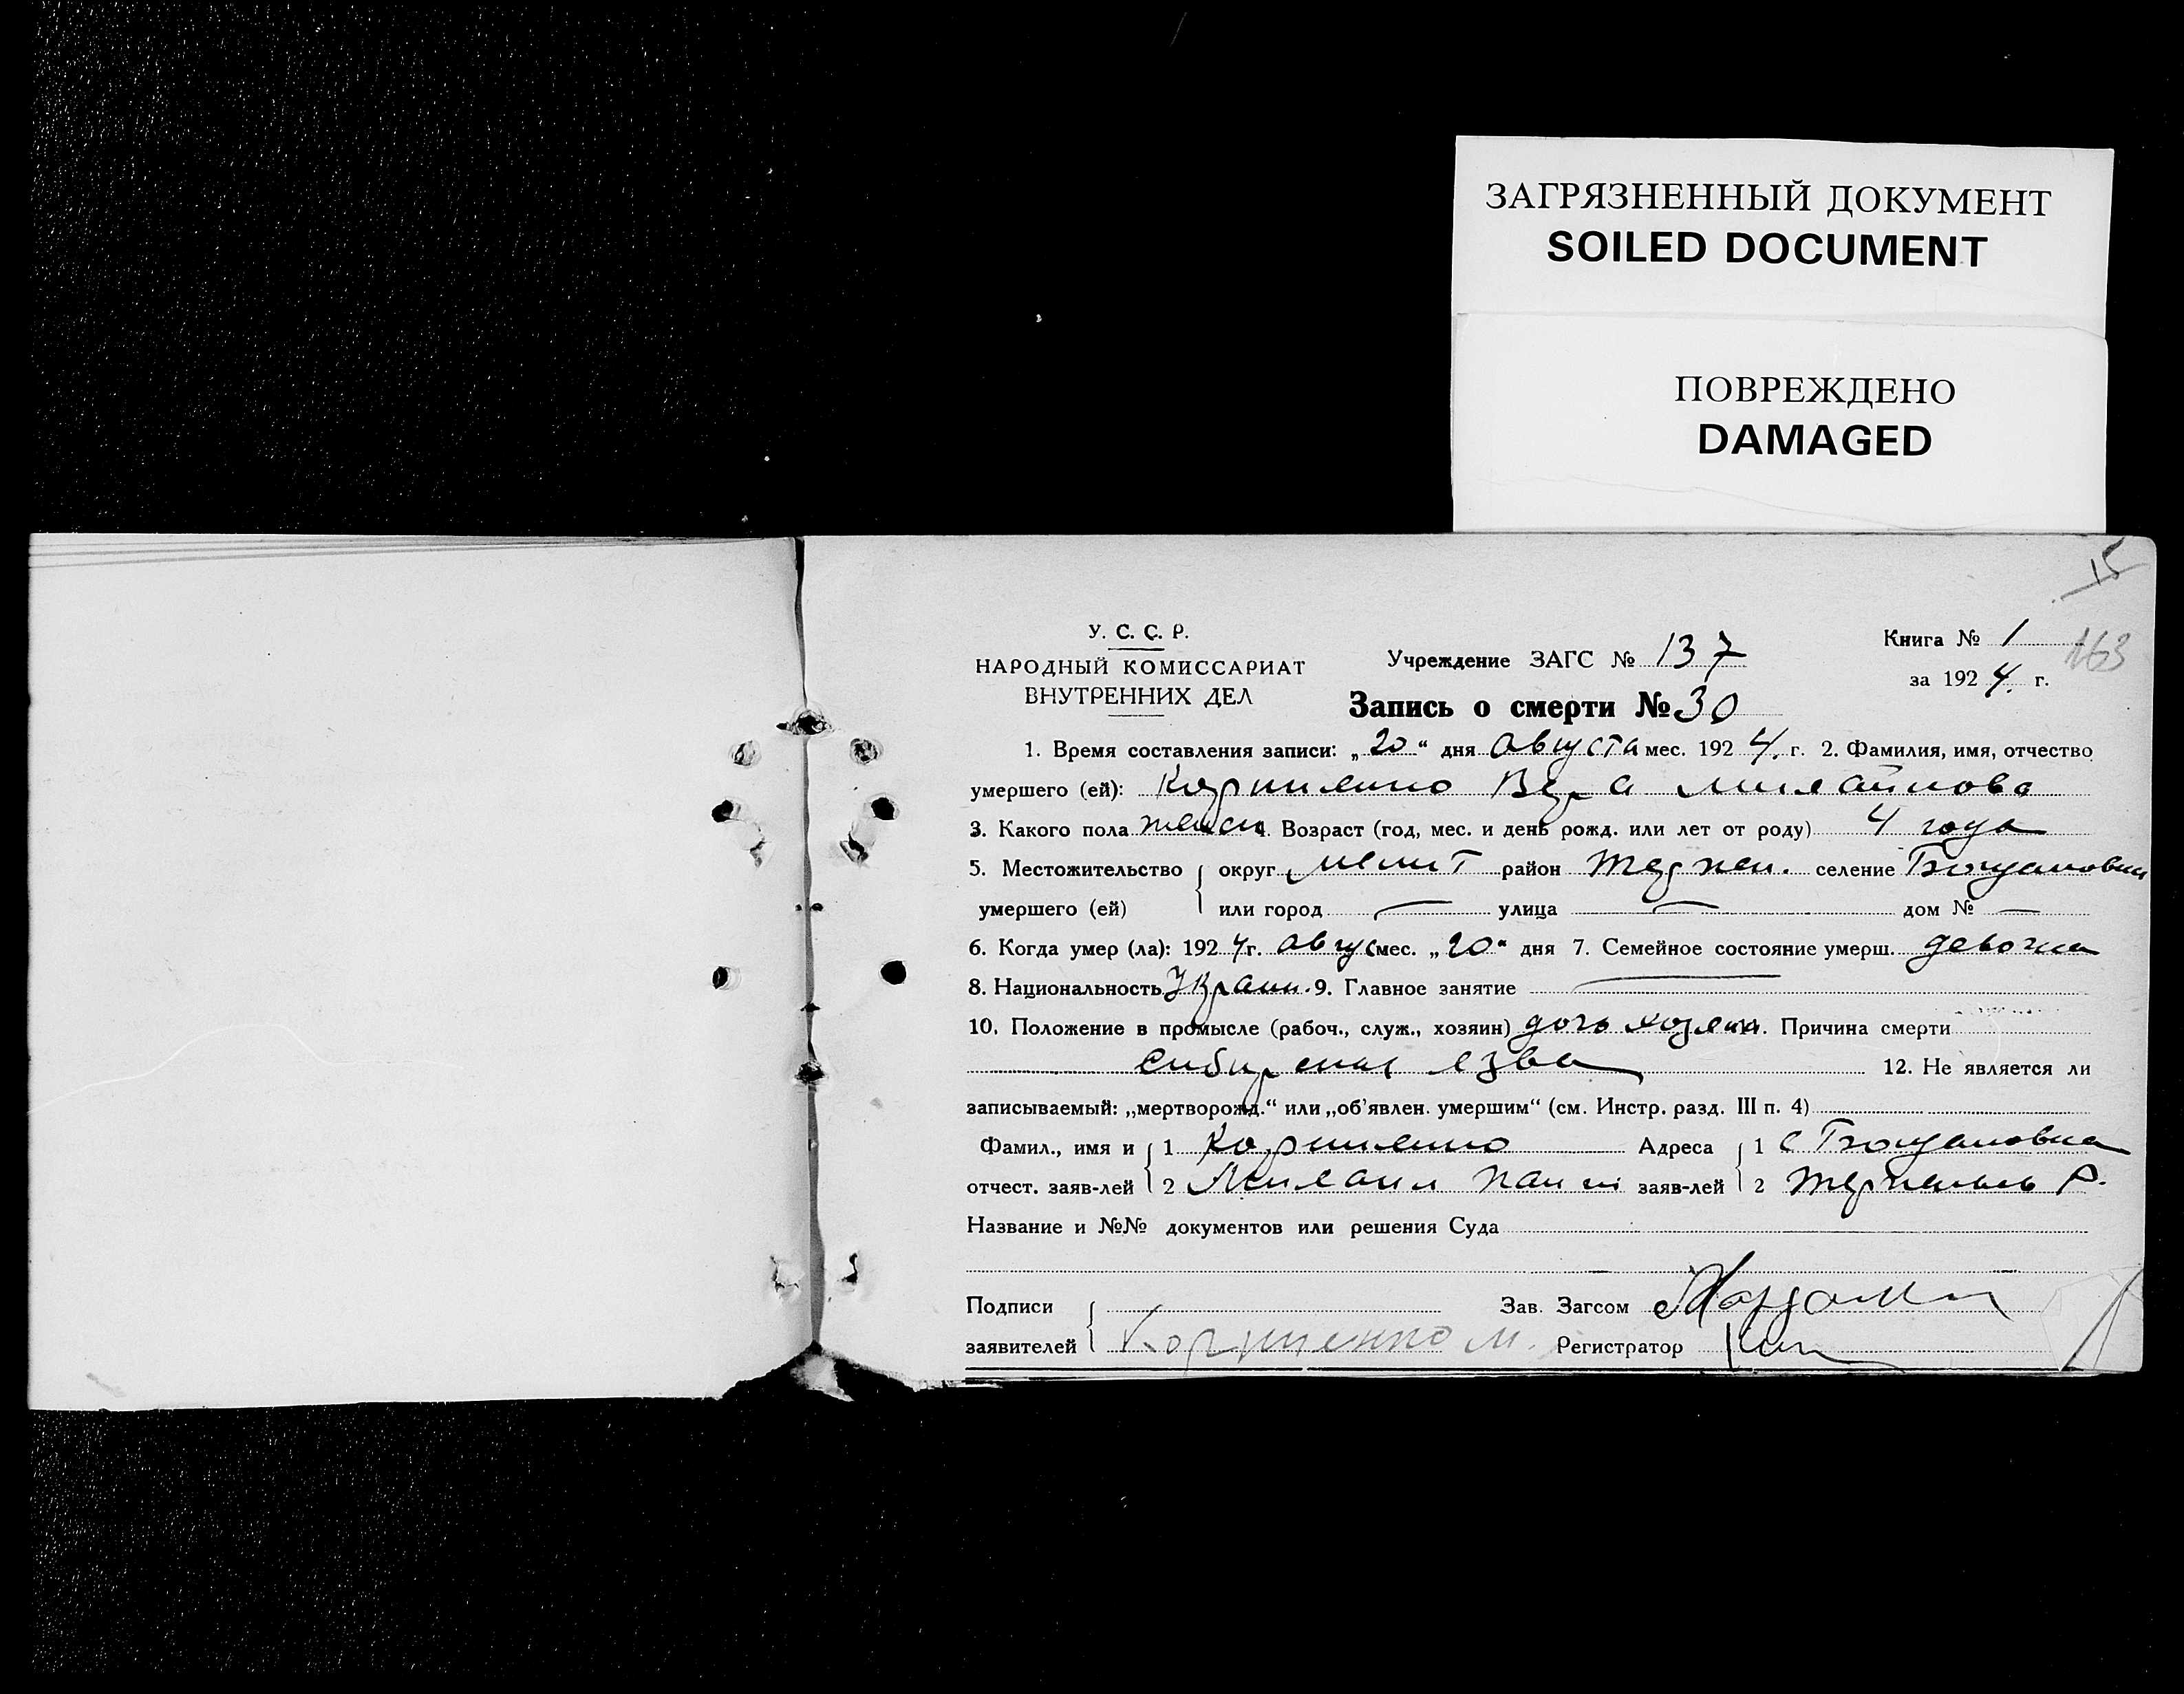 ЗАГРЯЗНЕННЫЙ ДОКУМЕНТ
SOILED DOCUMENT
ПОВРЕЖДЕНО
DAMAGED
15
У. С. С. Р.
НАРОДНЫЙ КОМИССАРИАТ
ВНУТРЕННИХ ДЕЛ
Учреждение ЗАГС № 137
Книга № 1
163
за 1924. г.
Запись о смерти № 30
1. Время составления записи: „20“ дня августа мес. 1924. г. 2. Фамилия, имя, отчество
умершего (ей): Коршненко Вера Михайлова
3. Какого пола женск 4. Возраст (год, мес. и день рожд. или лет от роду) 4 года
5. Местожительство округ Мелит район Терпен. селение Богдановка
умершего (ей) или город — улица — дом № —
6. Когда умер (ла): 1924г. авгус мес. „20“ дня 7. Семейное состояние умерш. девочка
8. Национальность Украин. 9. Главное занятие —
10. Положение в промысле (рабоч., служ., хозяин) дочь хозяина. Причина смерти
сибирская язва 12. Не является ли
записываемый: „мертворожд.“ или „об'явлен. умершим“ (см. Инстр. разд. III п. 4)
Фамил., имя и 1 Коршненко Адреса 1 с Богдановка
отчест. заяв-лей 2 Михаил заяв-лей 2 Р.
Название и №№ документов или решения Суда
Подписи Зав. Загсом
заявителей Коршненко М. Регистратор